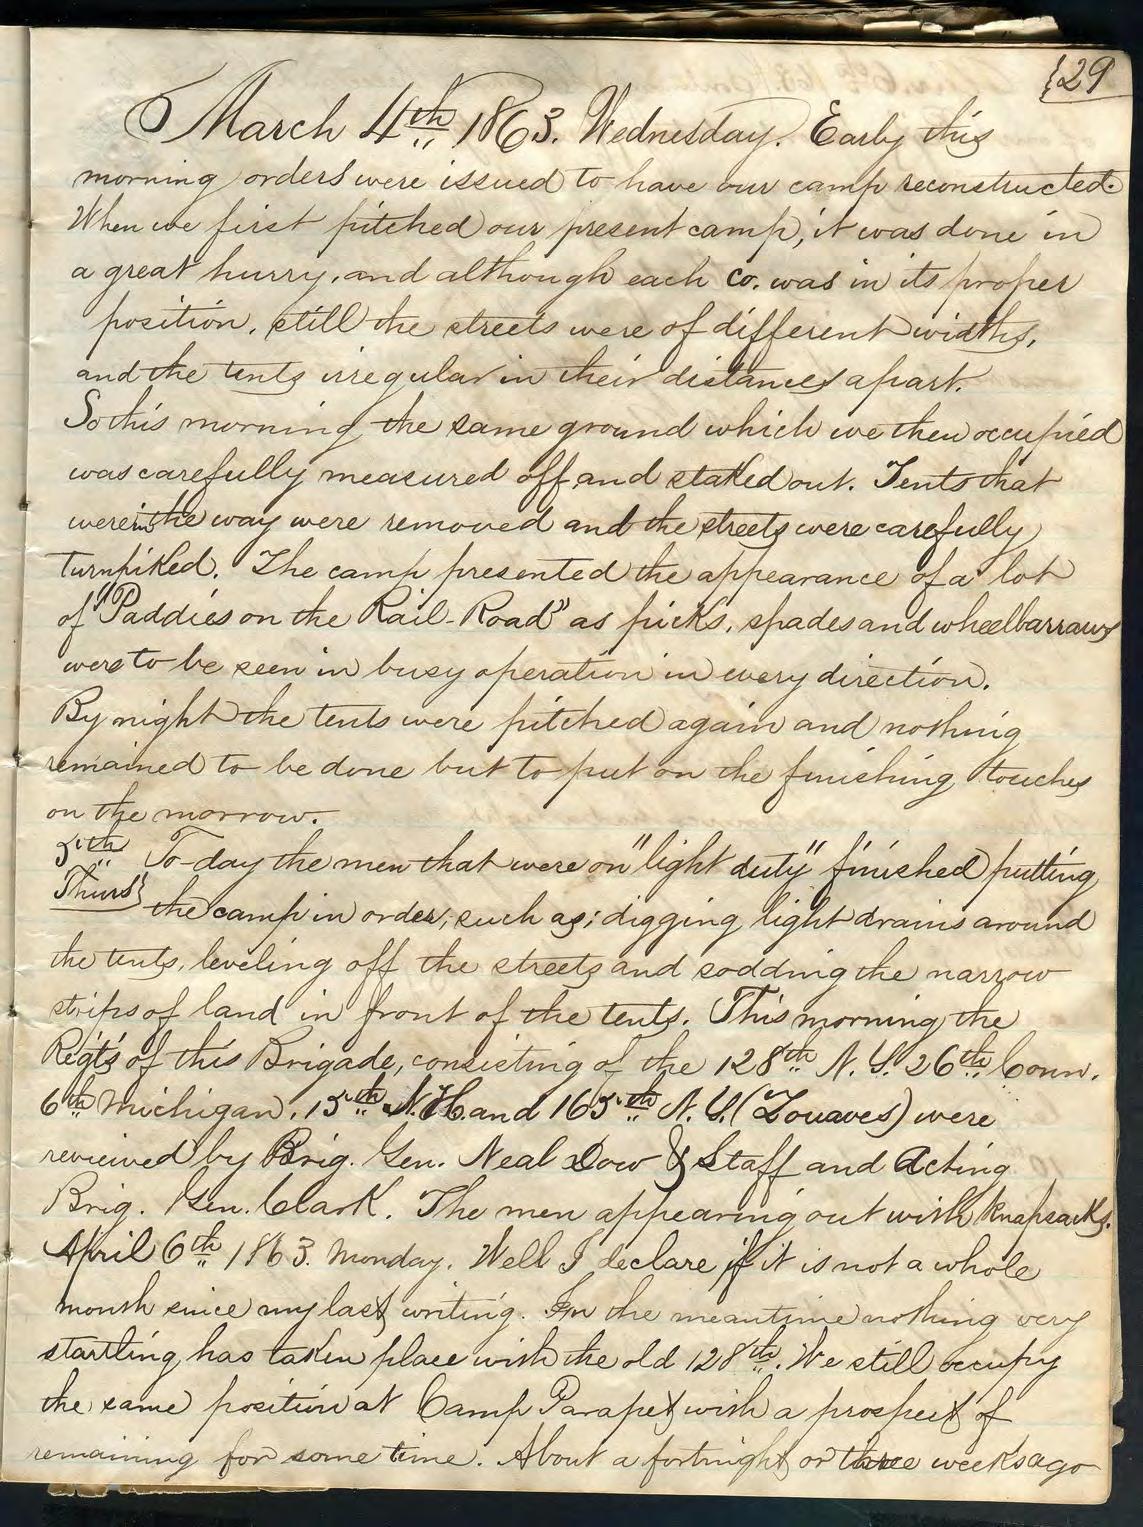 {29
March 4th 1863. Wednesday. Early this
morning orders were issued to have our camp reconstructed.
When we first pitched our present camp, it was done in
a great hurry, and although each Co. was in its proper
position, still the streets were of different widths,
and the tents irregular in their distances apart.
So this morning the same ground which we then occupied
was carefully measured off and staked out. Tents that
were in the way were removed and the streets were carefully
turnpiked. The camp presented the appearance of a lot
of "Paddies on the Rail-Road" as picks, spades and wheelbarraws
were to be seen in busy operation in every direction.
By night the tents were pitched again and nothing
remained to be done but to put on the finishing touches
on the morrow.
5th To-day the men that were on "light duty" finished putting
Thurs} the camp in order, such as; digging light drains around
the tents, leveling off the streets and sodding the narrow
strips of land in front of the tents. This morning the
Regt's of this Brigade, consisting of the 128th N.Y. 26th Conn.
6th Michigan, 15th N.H. and 165th N.Y. (Zouaves) were
reviewed by Brig. Gen. Neal Dow & Staff and Acting
Brig. Gen. Clark. The men appearing out with knapsacks.
April 6th 1863. Monday. Well I declare if it is not a whole
month since my last writing. In the meantime nothing very
startling has taken place with the old 128th. We still occupy
the same position at Camp Parapet with a prospect of
remaining for some time. About a fortnight or three weeks ago